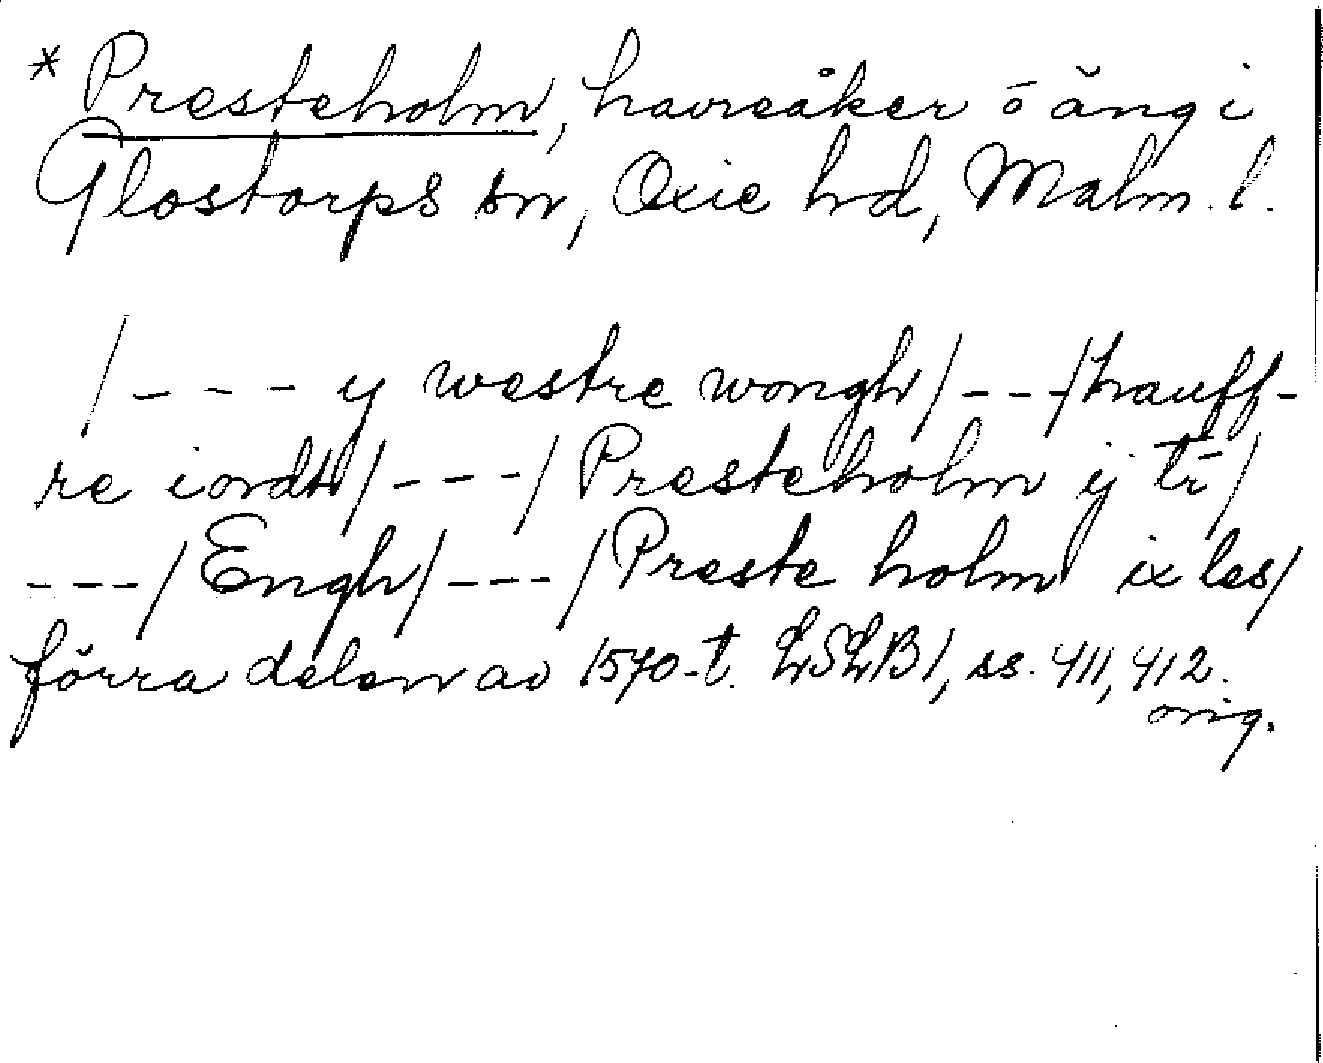 * Presteholm, havreåker o äng i
Glostorps sn, Oxie hd, Malm. l.
/--- y westre wongh/---/hauff-
re iordh/---/Presteholm ij tr/
---/Engh/---/Preste holm ix les/
förra delen av 1570-t. LSLB1, ss. 411, 412.
orig.